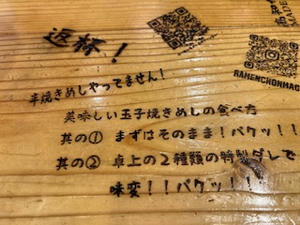 返杯！
半焼きめしやってません！
美味しい玉子焼きめしの食べ方
其の① まずはそのまま！パクッ！！
其の② 卓上の２種類の特製ダレで
味変！！パクッ！！
RAHENCHONHAG